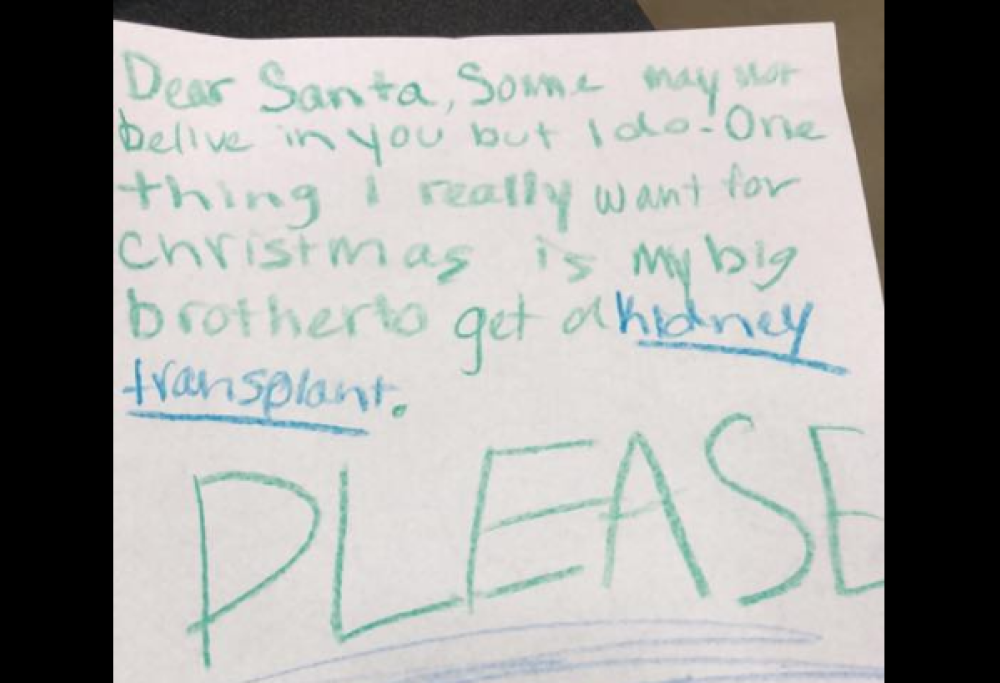 Dear Santa, Some may not
belive in you but I do. One
thing I really want for
christmas is my big
brother to get a kidney
transplant.
PLEASE